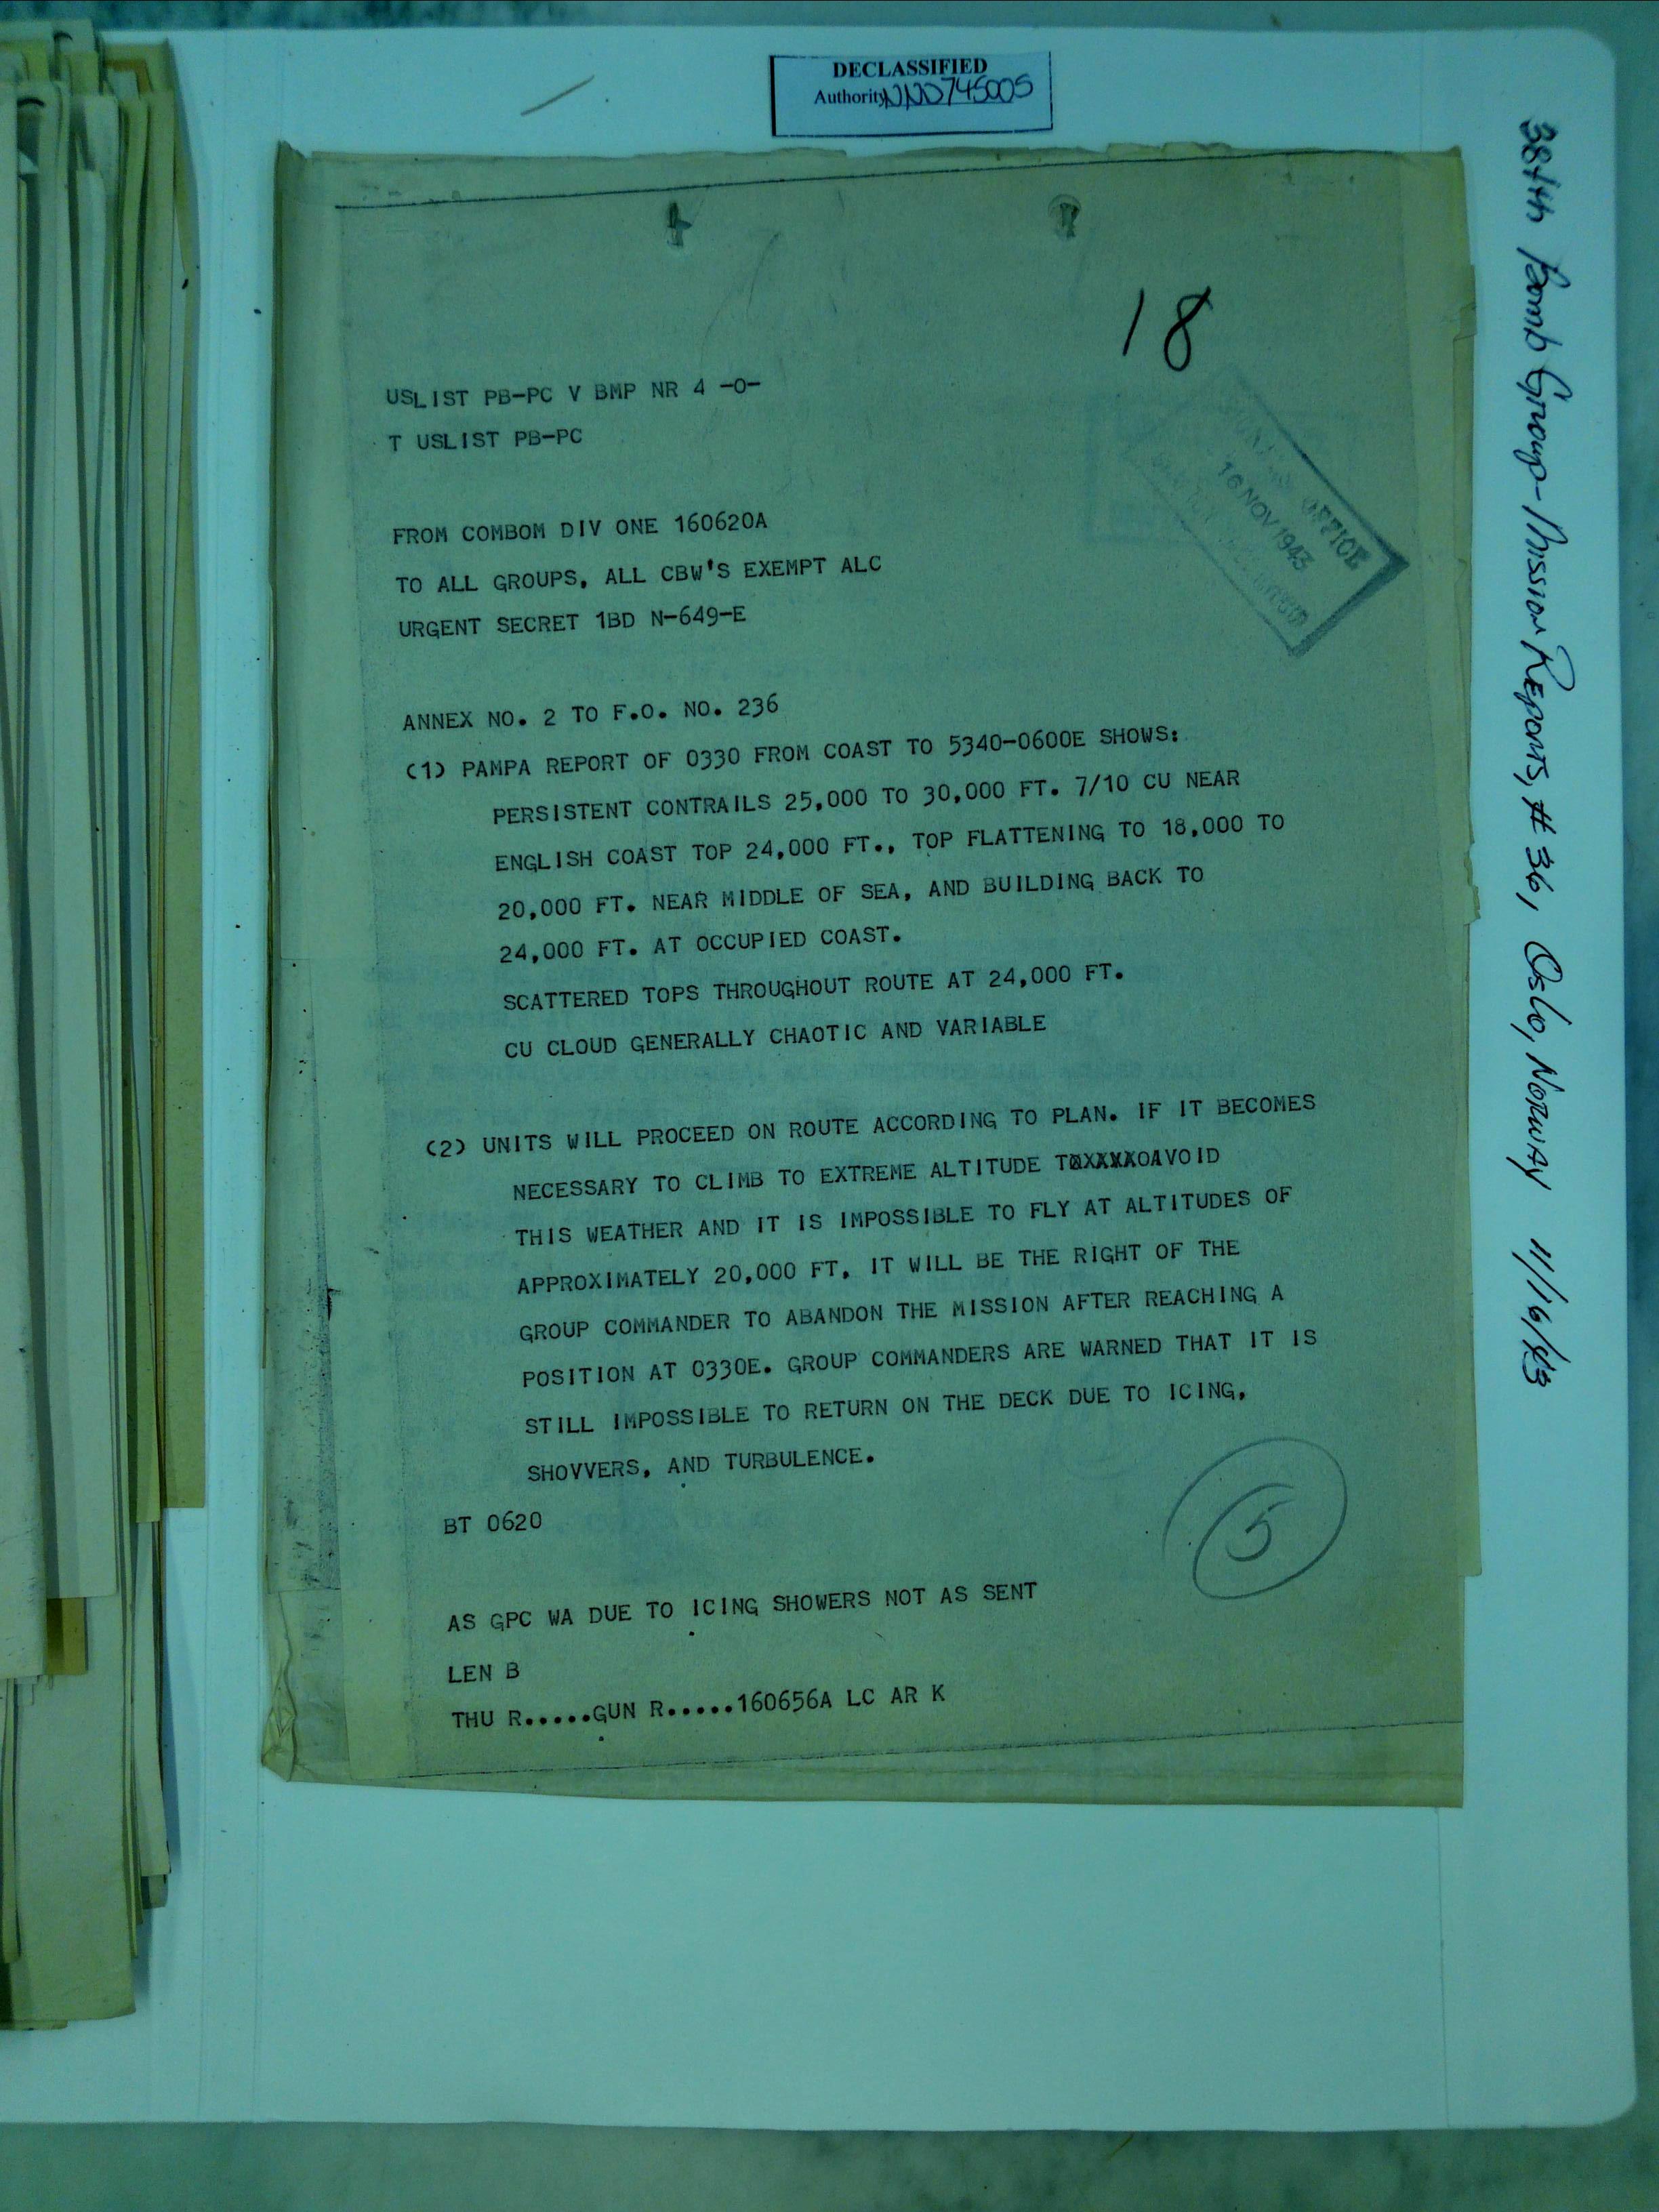 DECLASSIFIED
Authority NND745005
18
OFFICE
16 NOV 1943
USLIST PB-PC V BMP NR 4 -O-
T USLIST PB-PC
FROM COMBOM DIV ONE 160620A
TO ALL GROUPS, ALL CBW'S EXEMPT ALC
URGENT SECRET 1BD N-649-E
ANNEX NO. 2 TO F.O. NO. 236
(1) PAMPA REPORT OF 0330 FROM COAST TO 5340-0600E SHOWS:
PERSISTENT CONTRAILS 25,000 TO 30,000 FT. 7/10 CU NEAR
ENGLISH COAST TOP 24,000 FT., TOP FLATTENING TO 18,000 TO
20,000 FT. NEAR MIDDLE OF SEA, AND BUILDING BACK TO
24,000 FT. AT OCCUPIED COAST.
SCATTERED TOPS THROUGHOUT ROUTE AT 24,000 FT.
CU CLOUD GENERALLY CHAOTIC AND VARIABLE
(2) UNITS WILL PROCEED ON ROUTE ACCORDING TO PLAN. IF IT BECOMES
NECESSARY TO CLIMB TO EXTREME ALTITUDE TO AVOID
THIS WEATHER AND IT IS IMPOSSIBLE TO FLY AT ALTITUDES OF
APPROXIMATELY 20,000 FT, IT WILL BE THE RIGHT OF THE
GROUP COMMANDER TO ABANDON THE MISSION AFTER REACHING A
POSITION AT 0330E. GROUP COMMANDERS ARE WARNED THAT IT IS
STILL IMPOSSIBLE TO RETURN ON THE DECK DUE TO ICING,
SHOVVERS, AND TURBULENCE.
BT 0620
5
AS GPC WA DUE TO ICING SHOWERS NOT AS SENT
LEN B
THU R.....GUN R.....160656A LC AR K
384th Bomb Group - Mission Reports, #36, Oslo, Norway 11/16/43